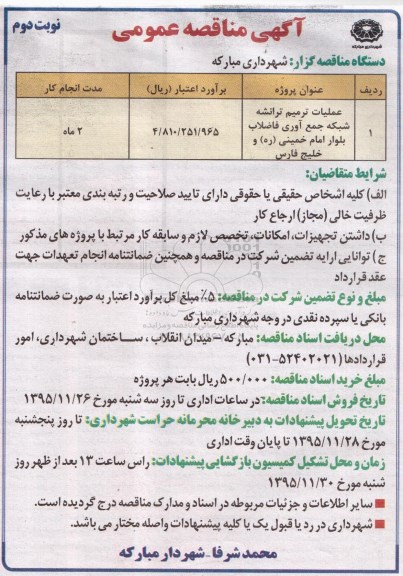 آگهی مناقصه عمومی
نوبت دوم
شهرداری مبارکه
دستگاه مناقصه گزار: شهرداری مبارکه
ردیف عنوان پروژه برآورد اعتبار (ریال) مدت انجام کار
۱ عملیات ترمیم ترانشه شبکه جمع آوری فاضلاب بلوار امام خمینی (ره) و خلیج فارس ۴/۸۱۰/۲۵۱/۹۶۵ ۲ ماه
شرایط متقاضیان:
الف) کلیه اشخاص حقیقی یا حقوقی دارای تایید صلاحیت و رتبه بندی معتبر با رعایت
ظرفیت خالی (مجاز) ارجاع کار
ب) داشتن تجهیزات، امکانات، تخصص لازم و سابقه کار مرتبط با پروژه های مذکور
ج) توانایی ارایه تضمین شرکت در مناقصه و همچنین ضمانتنامه انجام تعهدات جهت
عقد قرارداد
مبلغ و نوع تضمین شرکت در مناقصه: ۵٪ مبلغ کل برآورد اعتبار به صورت ضمانتنامه
بانکی یا سپرده نقدی در وجه شهرداری مبارکه
محل دریافت اسناد مناقصه: مبارکه – میدان انقلاب ، ساختمان شهرداری، امور
قراردادها (۵۲۴۰۲۰۲۱-۰۳۱)
مبلغ خرید اسناد مناقصه: ۵۰۰/۰۰۰ ریال بابت هر پروژه
تاریخ فروش اسناد مناقصه: در ساعات اداری تا روز سه شنبه مورخ ۱۳۹۵/۱۱/۲۶
تاریخ تحویل پیشنهادات به دبیرخانه محرمانه حراست شهرداری: تا روز پنجشنبه
مورخ ۱۳۹۵/۱۱/۲۸ تا پایان وقت اداری
زمان و محل تشکیل کمیسیون بازگشایی پیشنهادات: راس ساعت ۱۳ بعد از ظهر روز
شنبه مورخ ۱۳۹۵/۱۱/۳۰
سایر اطلاعات و جزئیات مربوطه در اسناد و مدارک مناقصه درج گردیده است.
شهرداری در رد یا قبول یک یا کلیه پیشنهادات واصله مختار می باشد.
محمد شرفا - شهردار مبارکه